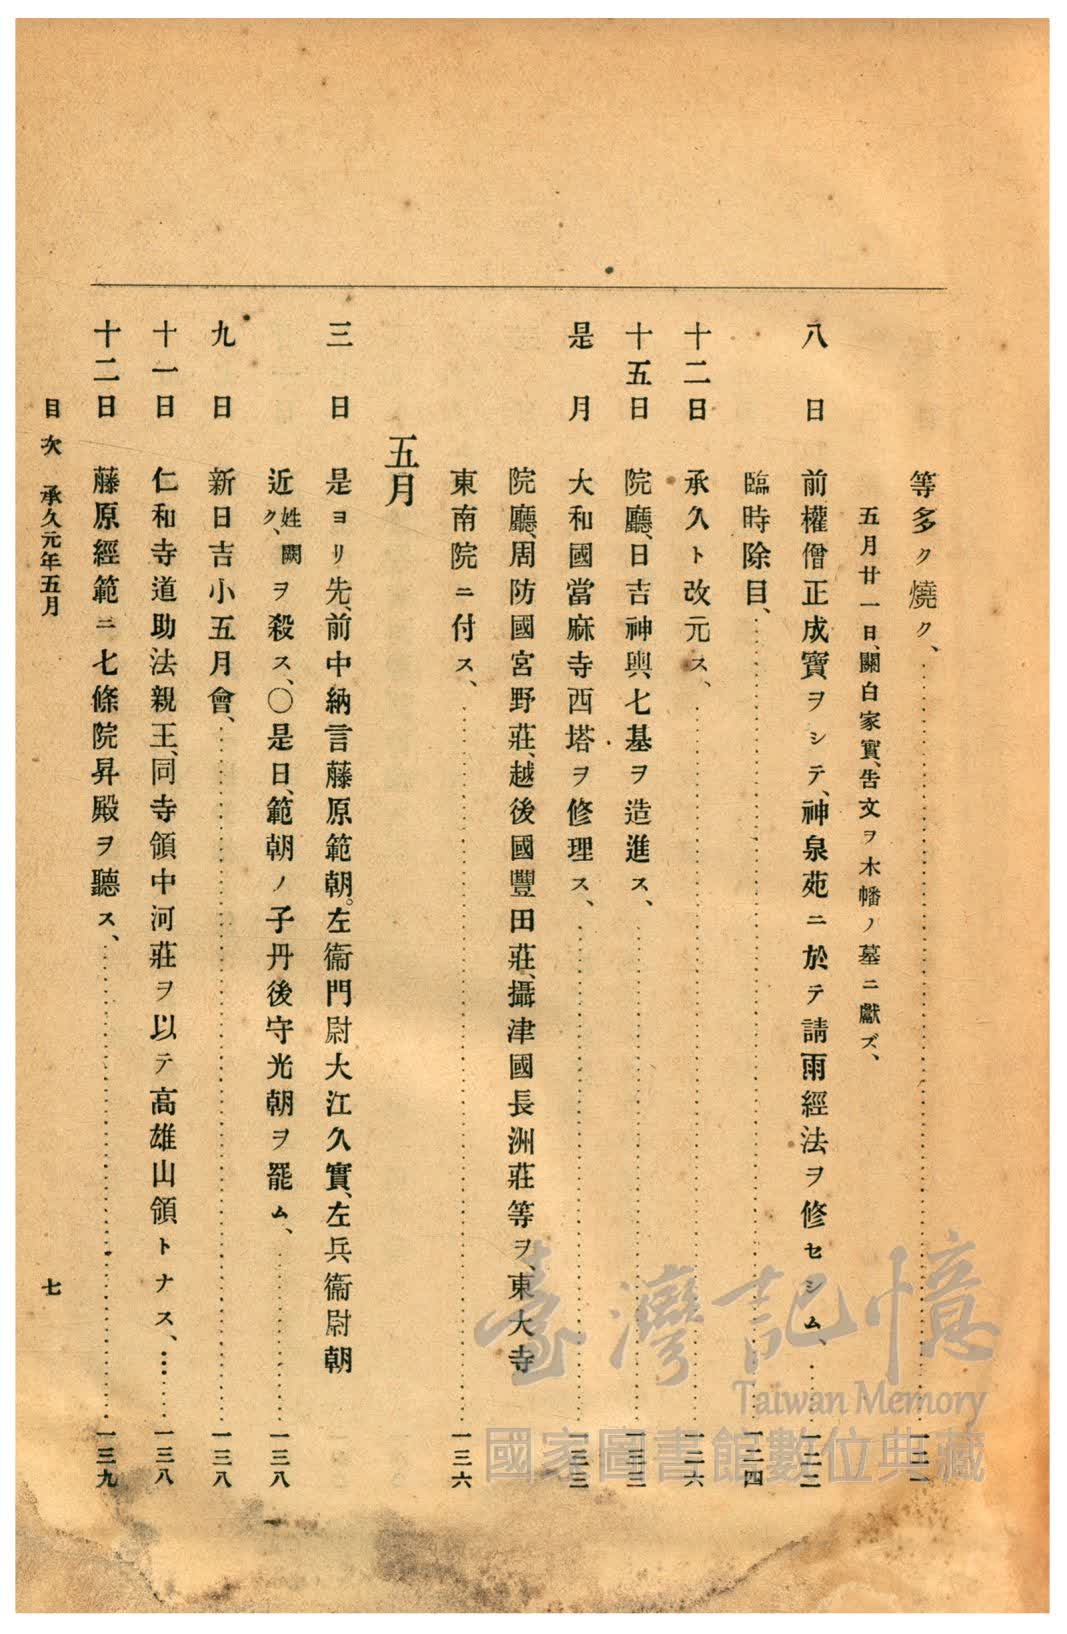 等多ク燒ク、……一二二
五月廿一日、關白家實、告文ヲ木幡ノ墓ニ獻ズ、
八日　前權僧正成寶ヲシテ、神泉苑ニ於テ請雨經法ヲ修セシム、……一二三
臨時除目、……一二四
十二日　承久ト改元ス、……一二六
十五日　院廳、日吉神輿七基ヲ造進ス、……一三三
是月　大和國當麻寺西塔ヲ修理ス、……一三三
院廳、周防國宮野莊、越後國豐田莊、攝津國長洲莊等ヲ、東大寺
東南院ニ付ス、……一三六
五月
三日　是ヨリ先、前中納言藤原範朝。左衞門尉大江久實、左兵衞尉朝
近姓闕ク、ヲ殺ス、〇是日、範朝ノ子丹後守光朝ヲ罷ム、……一三八
九日　新日吉小五月會、……一三八
十一日　仁和寺道助法親王、同寺領中河莊ヲ以テ高雄山領トナス、……一三八
十二日　藤原經範ニ七條院昇殿ヲ聽ス、……一三九
目次　承久元年五月　七
臺灣記憶
Taiwan Memory
國家圖書館數位典藏